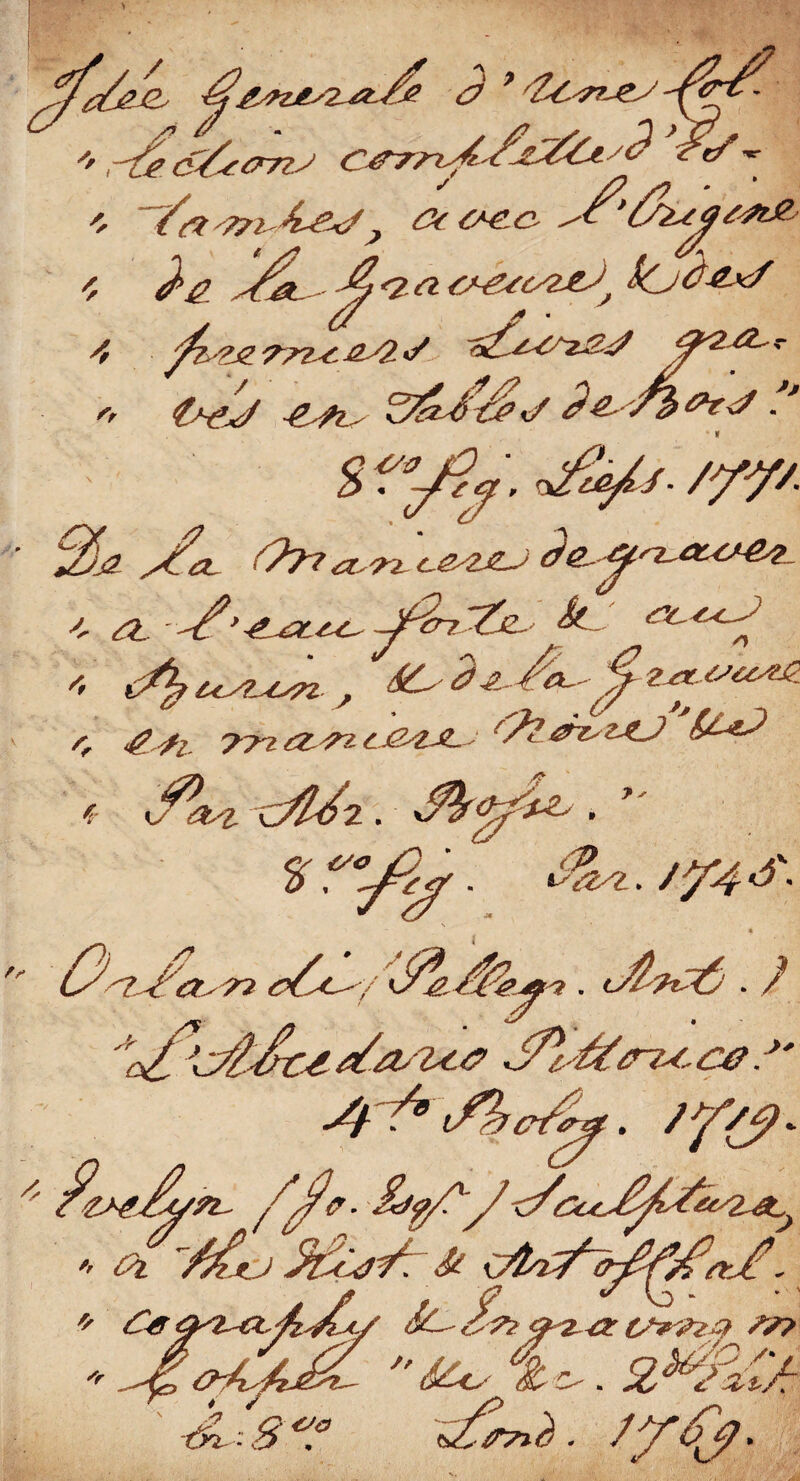 Idée Generale d'une Col.
" lection complette d'Es-
" tampes, avec l'Origine
" de la Graveure, & des
" premiers Livres gra-
" vés en Tables de Bois."
8.vo fig. Lieps. 1771.
De la Maniere de graver
" a l'eau forte & au
" Burin, & de la Gravûre
" en maniere Noire" &c
" Par Abr. Bosse."
8.vo fig. Par. 1745.
" Orlandi (Pellegr. Ant.)
"L'Abcedario Pittorico."
4.to Bolog. 1719.
" Evelyn (Jo. Esqr.) Sculptura,
" or the Hist. & Art of Chal.
" cography & Engraving in
" Copper" &c &c. 2d Edit.
br: 8.vo Lond. 1769.